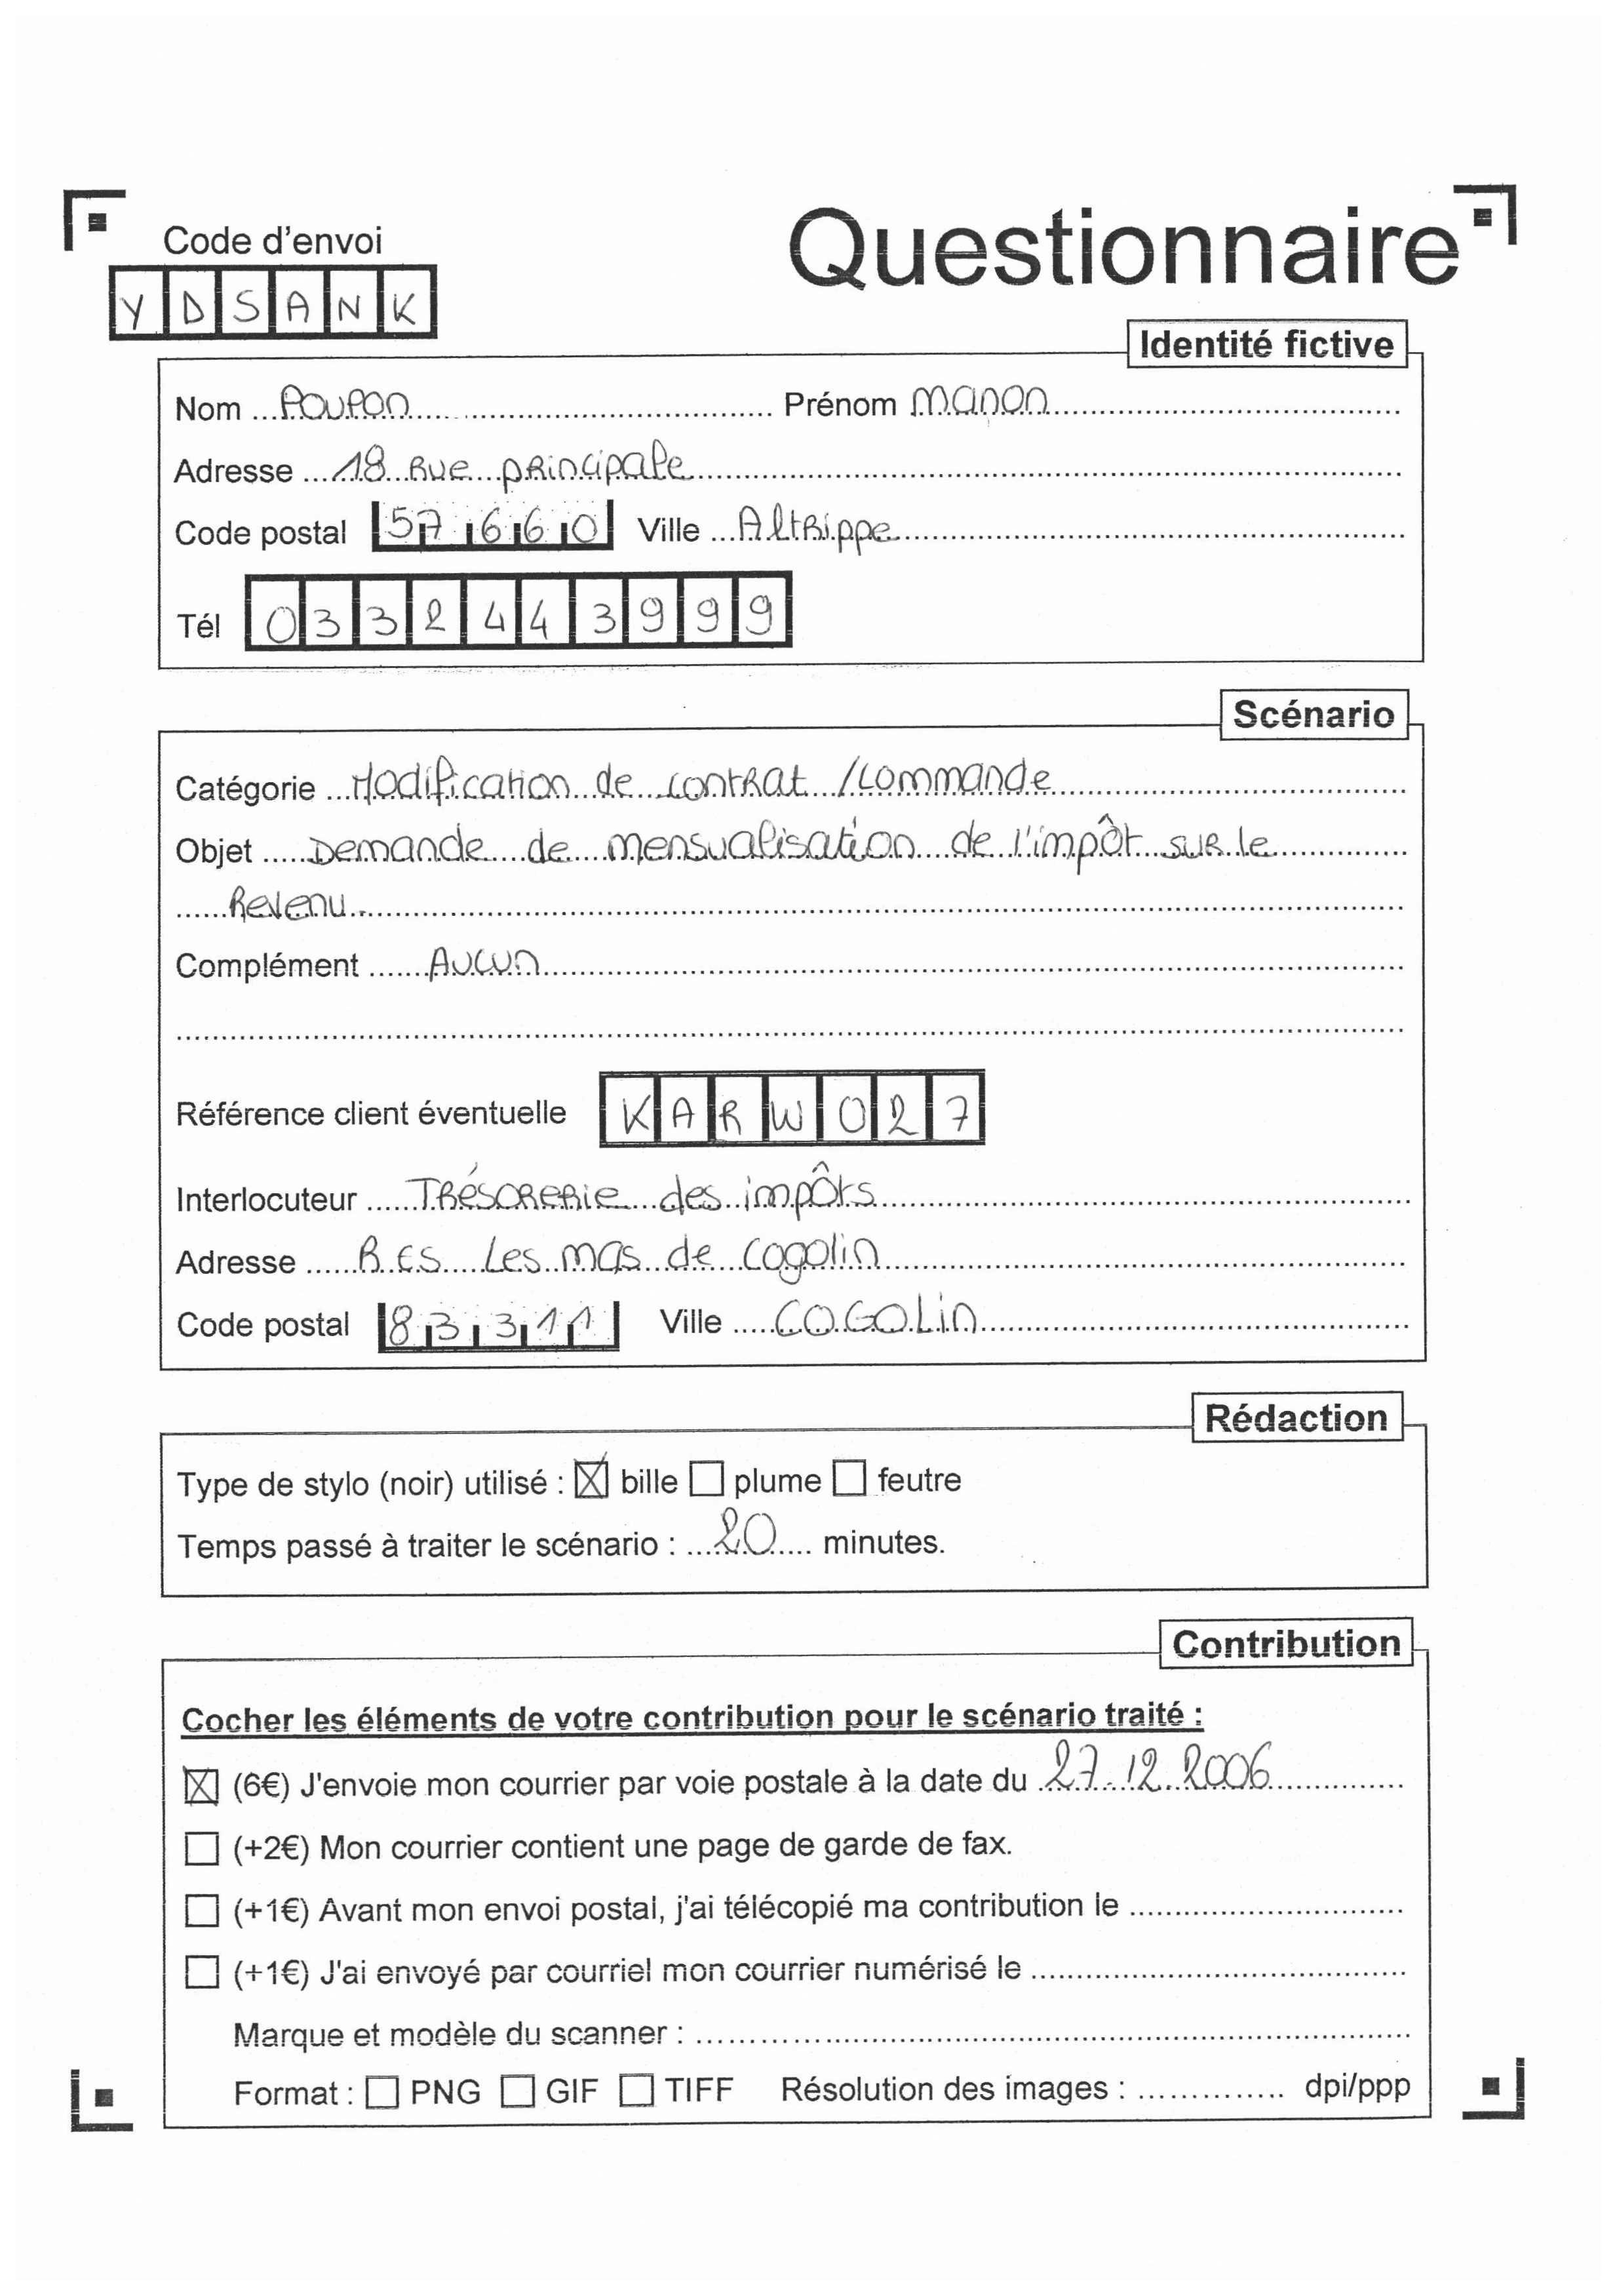 Code d'envoi
Questionnaire
YDSANK
Identité fictive
Nom ... Poupon ... Prénom manon
Adresse ... 18 Rue principale
Code postal 57660 Ville ... Altrippe
Tél 0332443999
Scénario
Catégorie ... Modification de contrat / commande
Objet ... Demande de mensualisation de l'impôt sur le
Revenu.
Complément ... Aucun
Référence client éventuelle KARW027
Interlocuteur ... Trésorerie des impôts
Adresse ... RES Les mas de cogolin
Code postal 83311 Ville ... COGOLin
Rédaction
Type de stylo (noir) utilisé : ☒ bille ☐ plume ☐ feutre
Temps passé à traiter le scénario : ... 20 ... minutes.
Contribution
Cocher les éléments de votre contribution pour le scénario traité :
☒ (6€) J'envoie mon courrier par voie postale à la date du 27.12.2006
☐ (+2€) Mon courrier contient une page de garde de fax.
☐ (+1€) Avant mon envoi postal, j'ai télécopié ma contribution le ...
☐ (+1€) J'ai envoyé par courriel mon courrier numérisé le ...
Marque et modèle du scanner : ...
Format : ☐ PNG ☐ GIF ☐ TIFF Résolution des images : ... dpi/ppp